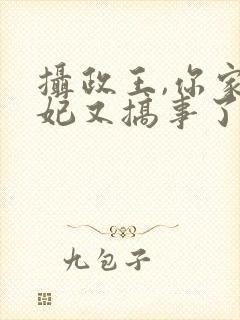 攝政王,你家
妃又搞事了
九包子